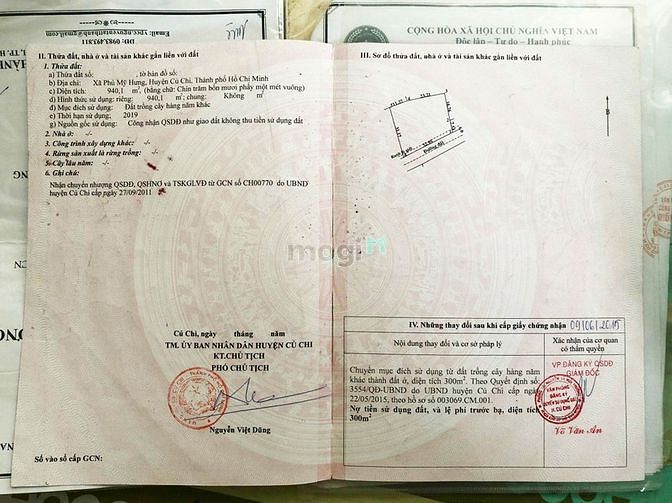 ĐT: 0983.493311
CỘNG HÒA XÃ HỘI CHỦ NGHĨA VIỆT NAM
Độc lập - Tự do - Hạnh phúc
II. Thửa đất, nhà ở và tài sản khác gắn liền với đất
1. Thửa đất:
a) Thửa đất số: , tờ bản đồ số:
b) Địa chỉ: Xã Phú Mỹ Hưng, Huyện Củ Chi, Thành phố Hồ Chí Minh
c) Diện tích: 940,1 m², (bằng chữ: Chín trăm bốn mươi phẩy một mét vuông)
d) Hình thức sử dụng: riêng: 940,1 m²; chung: Không m²
đ) Mục đích sử dụng: Đất trồng cây hàng năm khác
e) Thời hạn sử dụng: 2019
g) Nguồn gốc sử dụng: Công nhận QSDĐ như giao đất không thu tiền sử dụng đất
2. Nhà ở: -/-
3. Công trình xây dựng khác: -/-
4. Rừng sản xuất là rừng trồng: -/-
5. Cây lâu năm: -/-
6. Ghi chú:
Nhận chuyển nhượng QSDĐ, QSHNƠ và TSKGLVĐ từ GCN số CH00770 do UBND
huyện Củ Chi cấp ngày 27/09/2011
Củ Chi, ngày tháng năm
TM. ỦY BAN NHÂN DÂN HUYỆN CỦ CHI
KT.CHỦ TỊCH
PHÓ CHỦ TỊCH
Nguyễn Việt Dũng
Số vào sổ cấp GCN:
III. Sơ đồ thửa đất, nhà ở và tài sản khác gắn liền với đất
Đường đất
B
mogi
IV. Những thay đổi sau khi cấp giấy chứng nhận 09/06/2015
Nội dung thay đổi và cơ sở pháp lý
Xác nhận của cơ quan
có thẩm quyền
Chuyển mục đích sử dụng từ đất trồng cây hàng năm
khác thành đất ở, diện tích 300m². Theo Quyết định số:
3554/QĐ-UBND do UBND huyện Củ Chi cấp ngày
22/05/2015, theo hồ sơ số 003069.CM.001.
Nợ tiền sử dụng đất, và lệ phí trước bạ, diện tích
300m²
VP.ĐĂNG KÝ QSDĐ
GIÁM ĐỐC
VĂN PHÒNG
ĐĂNG KÝ
QUYỀN SỬ DỤNG ĐẤT
H. CỦ CHI
Võ Văn Ân